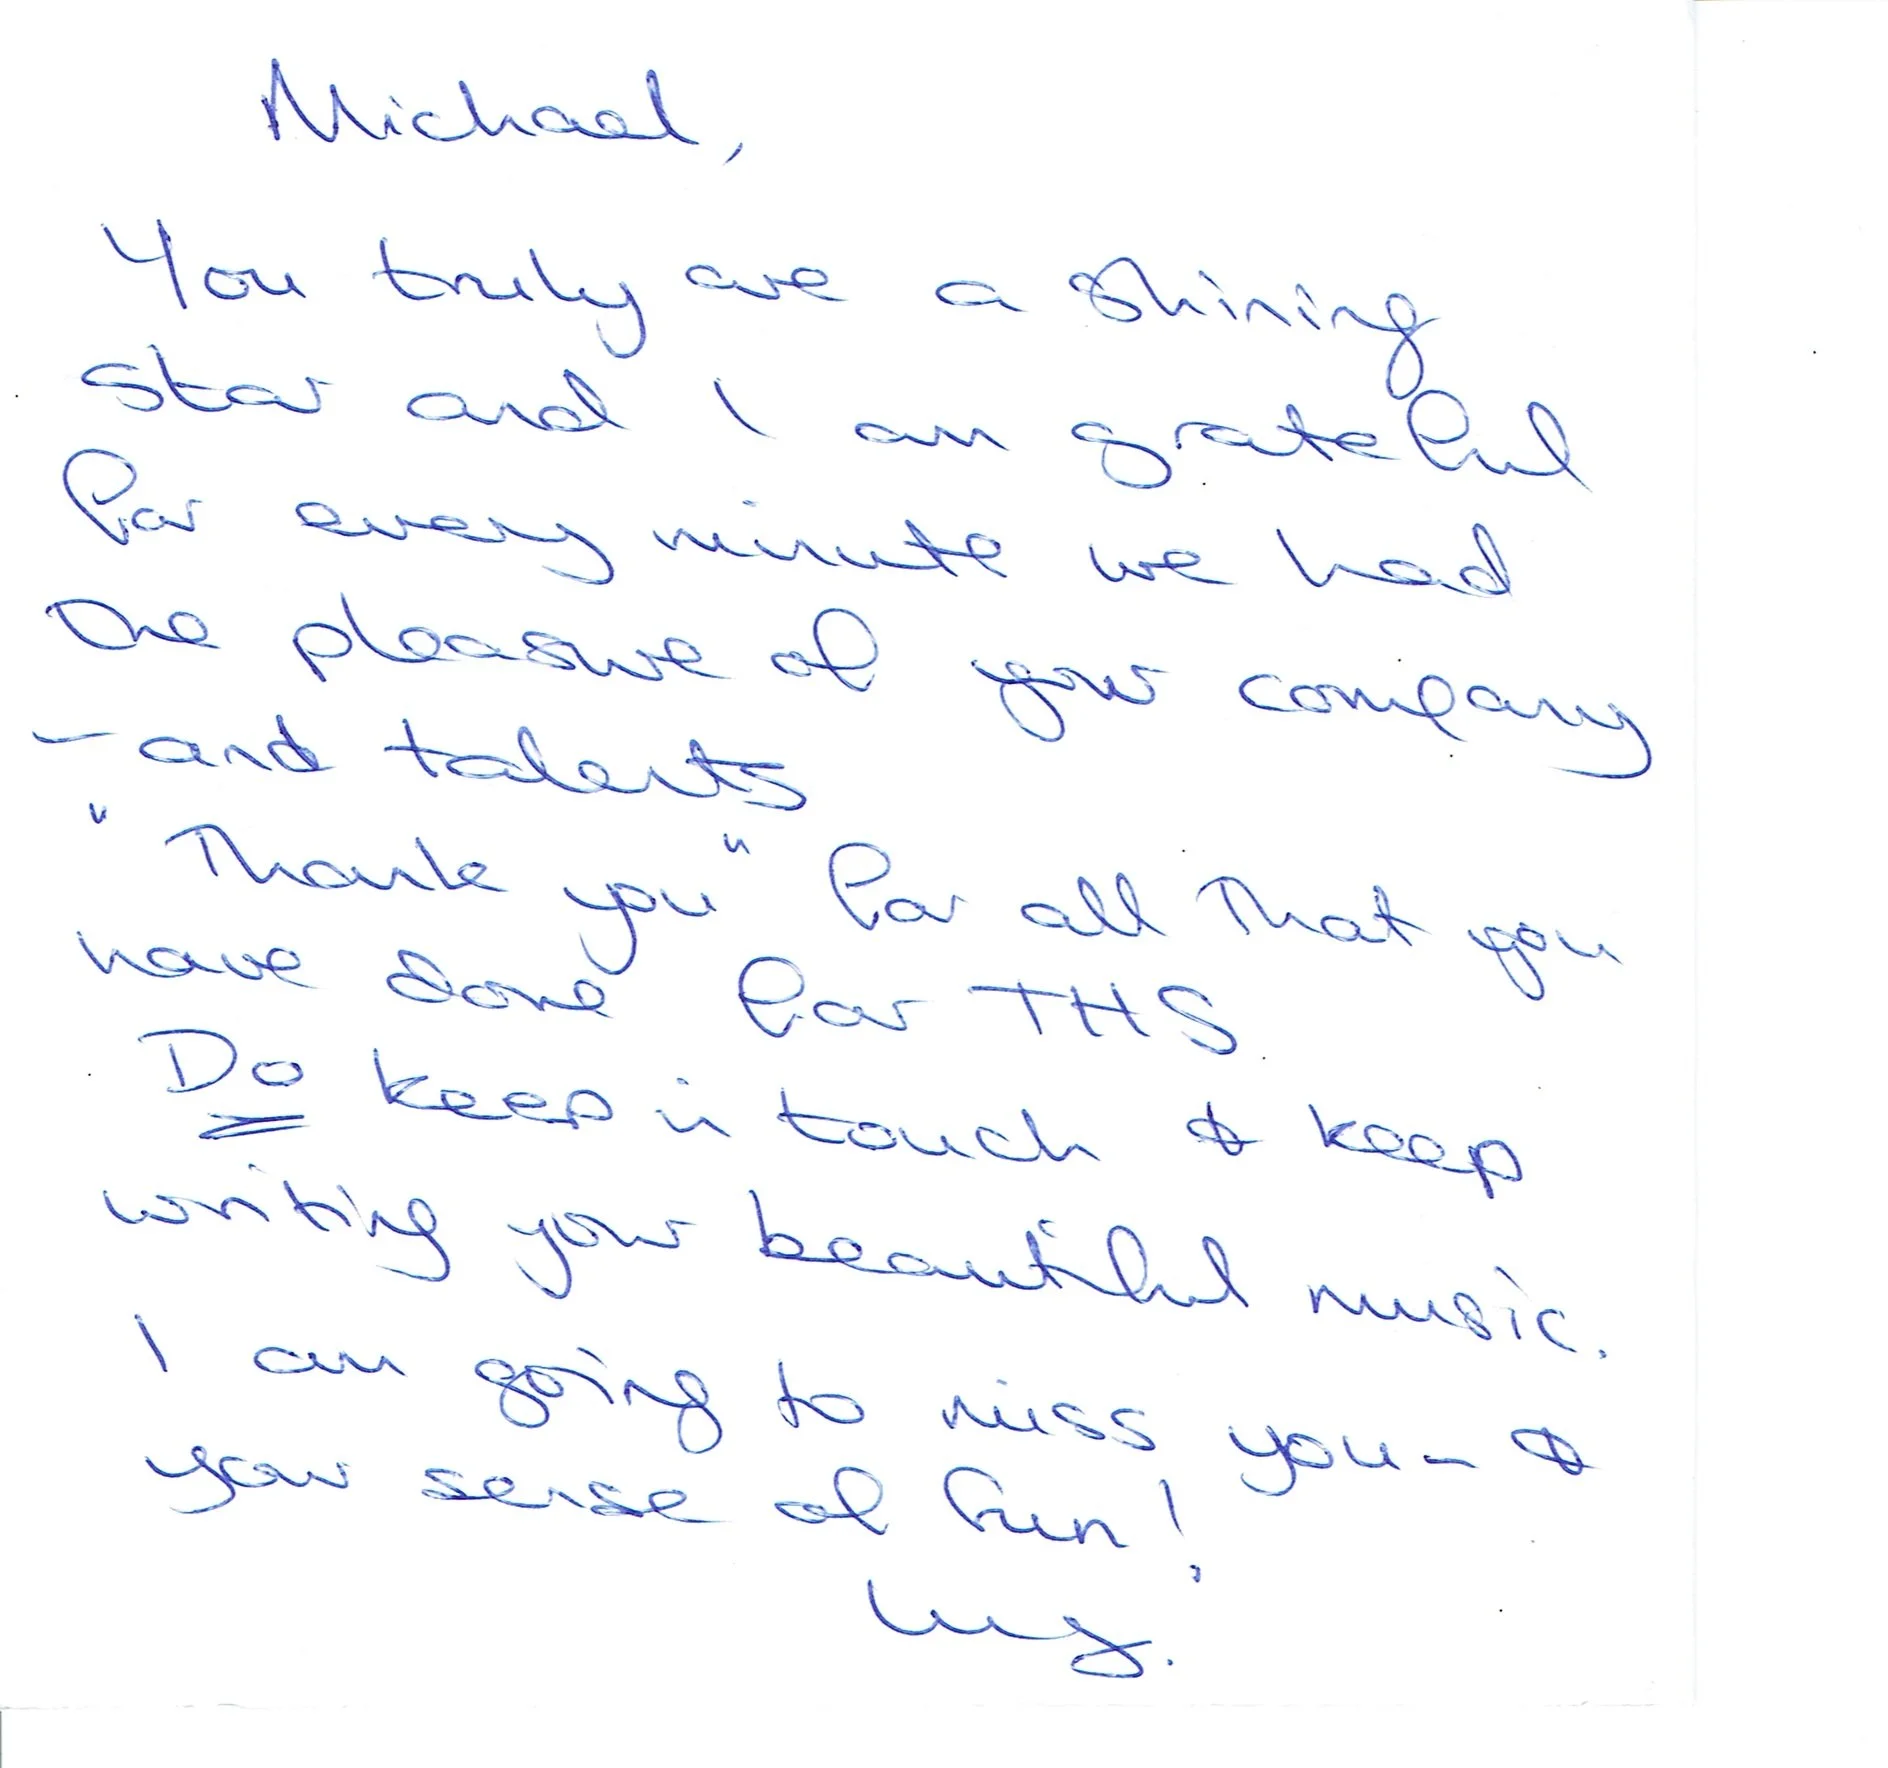 Michael,
You truly are a shining
star and I am grateful
for every minute we had
the pleasure of your company
– and talents
"Thank you" for all that you
have done for THS
Do keep in touch & keep
writing your beautiful music.
I am going to miss you – &
your sense of fun!